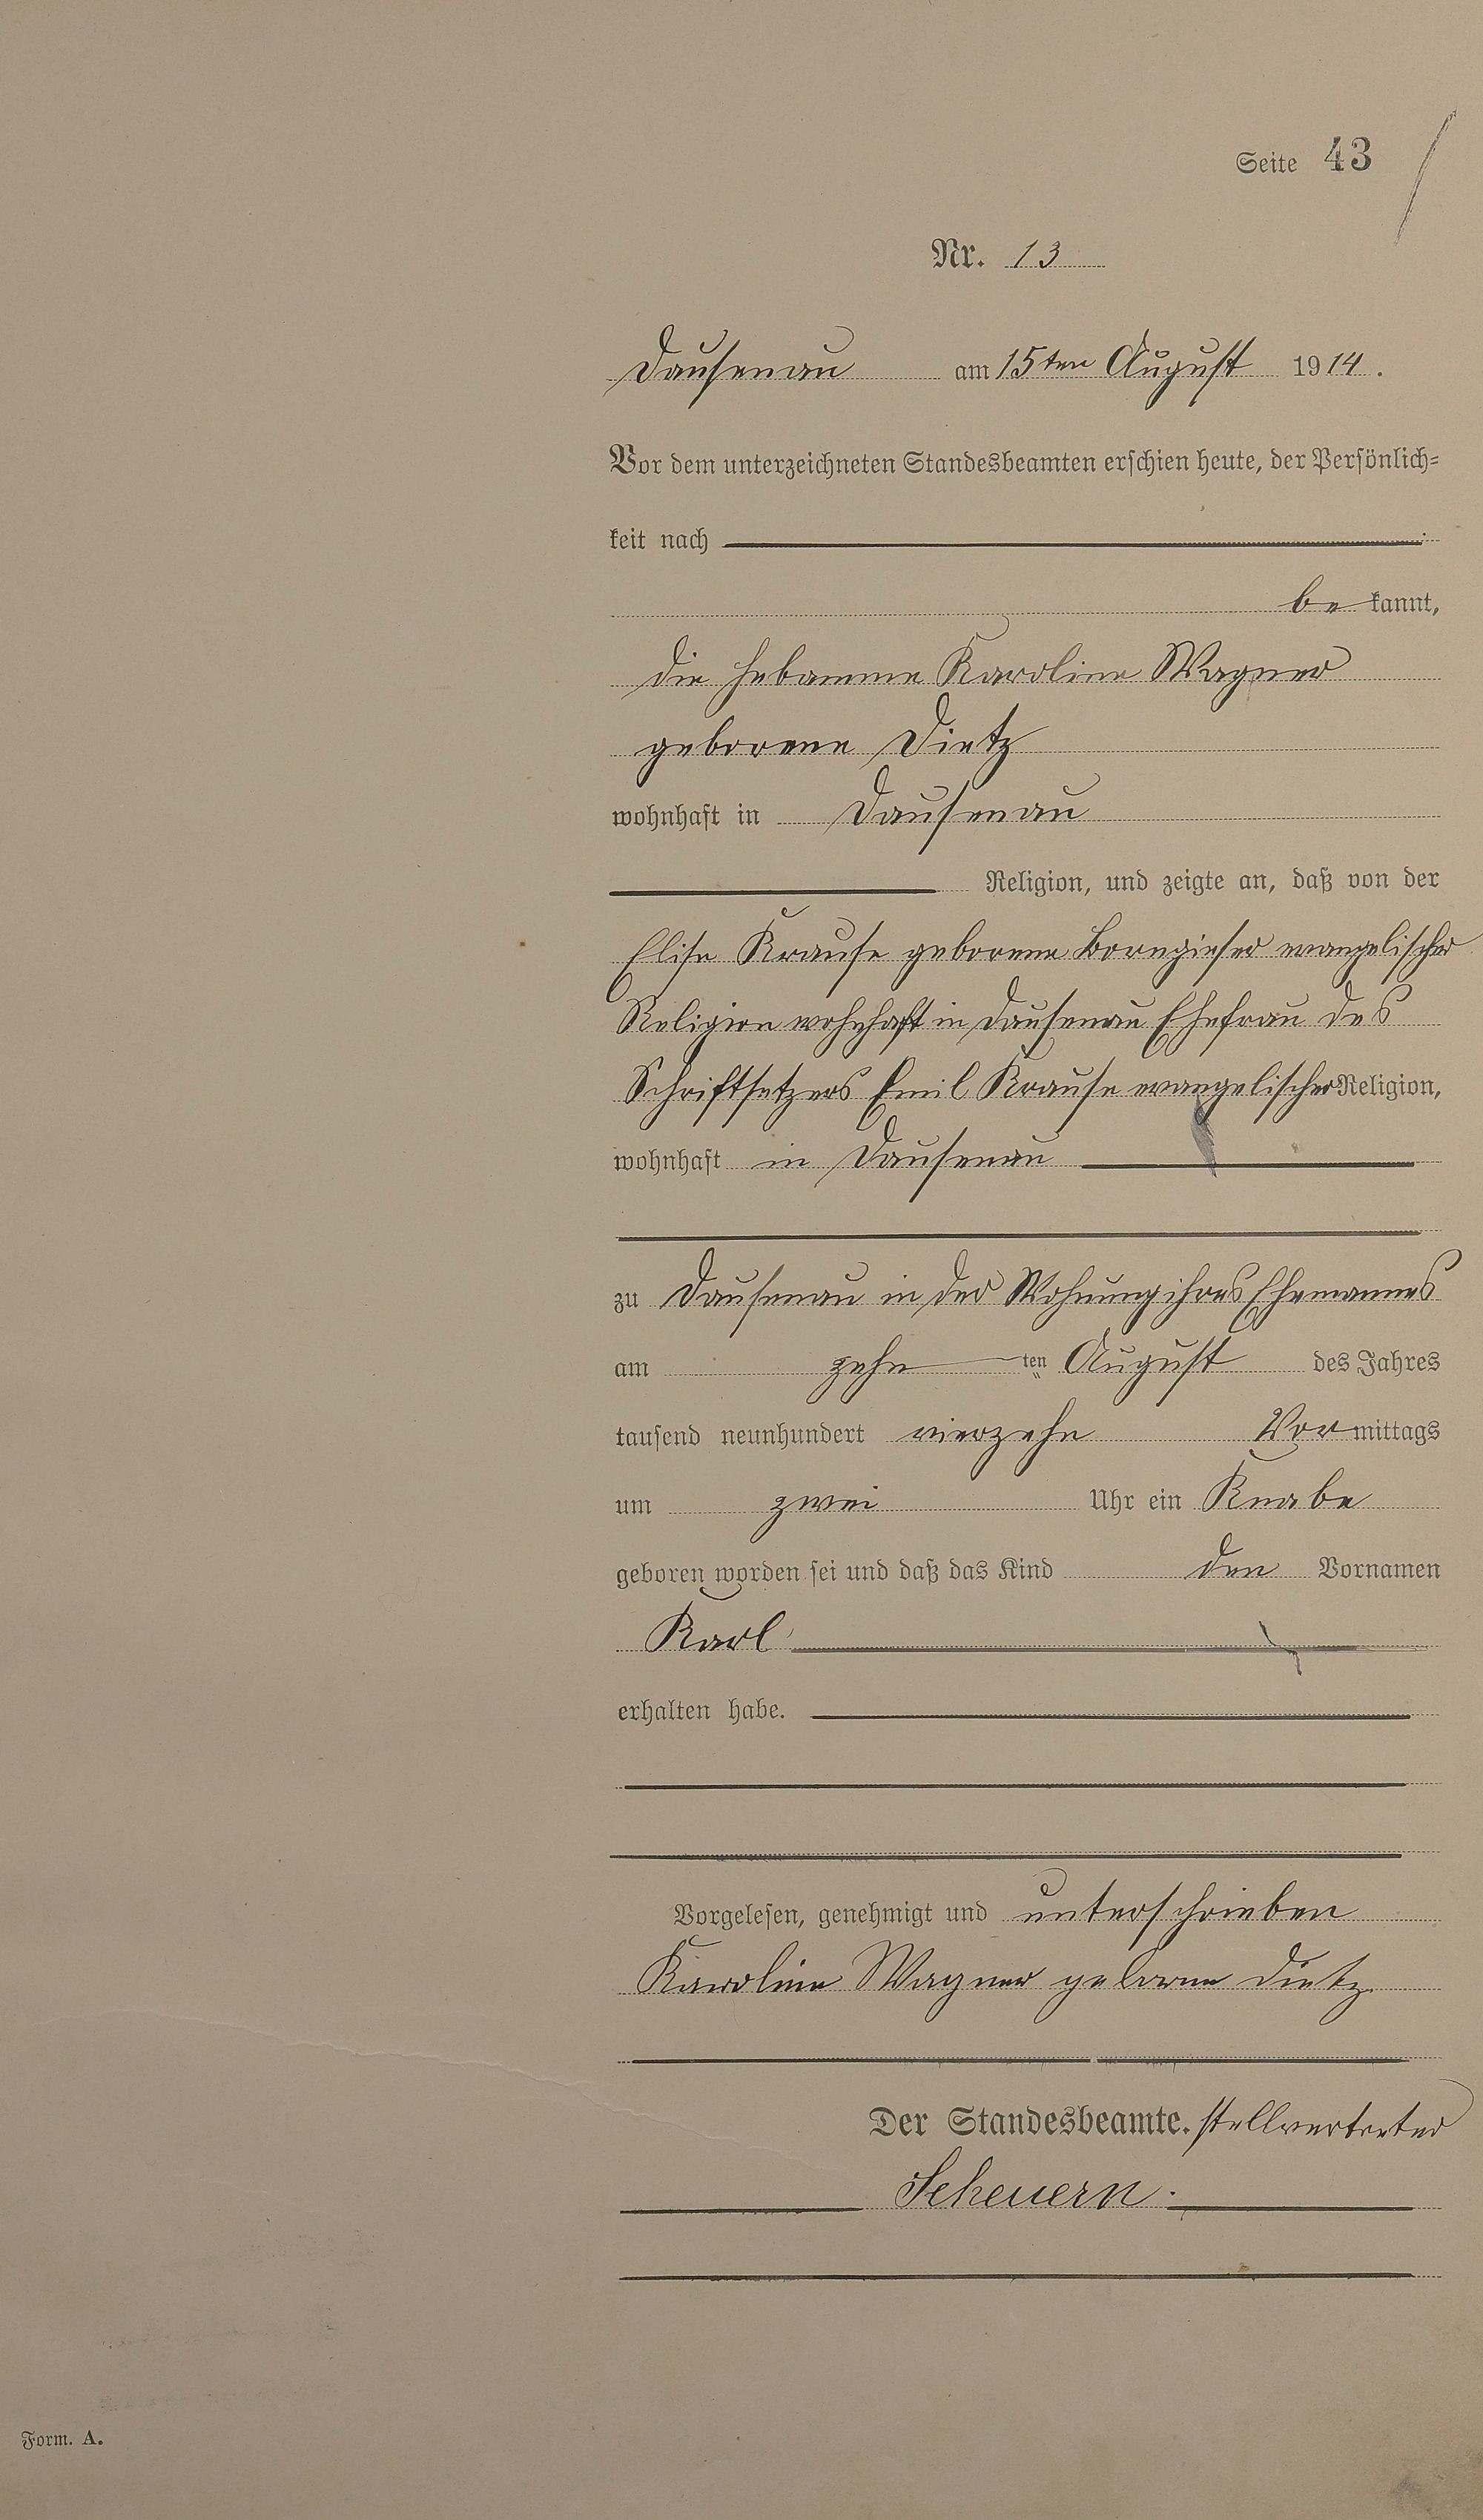 Seite 43
Nr. 13
Dausenau am 15ten August 1914.
Vor dem unterzeichneten Standesbeamten erschien heute, der Persönlich-
keit nach
be kannt,
die Hebamme Karoline Wagner
geborene Dietz
wohnhaft in Dausenau
Religion, und zeigte an, daß von der
Elise Krause geborene Borngießer evangelischer
Religion wohnhaft in Dausenau Ehefrau des
Schriftsetzers Emil Krause evangelischer Religion,
wohnhaft in Dausenau
zu Dausenau in der Wohnung ihres Ehemannes
am zehn ten August des Jahres
tausend neunhundert vierzehn Vor mittags
um zwei Uhr ein Knabe
geboren worden sei und daß das Kind den Vornamen
Karl
erhalten habe.
Vorgelesen, genehmigt und unterschrieben
Karoline Wagner geborne Dietz
Der Standesbeamte. stellvertreter
Scheuern.
Form. A.